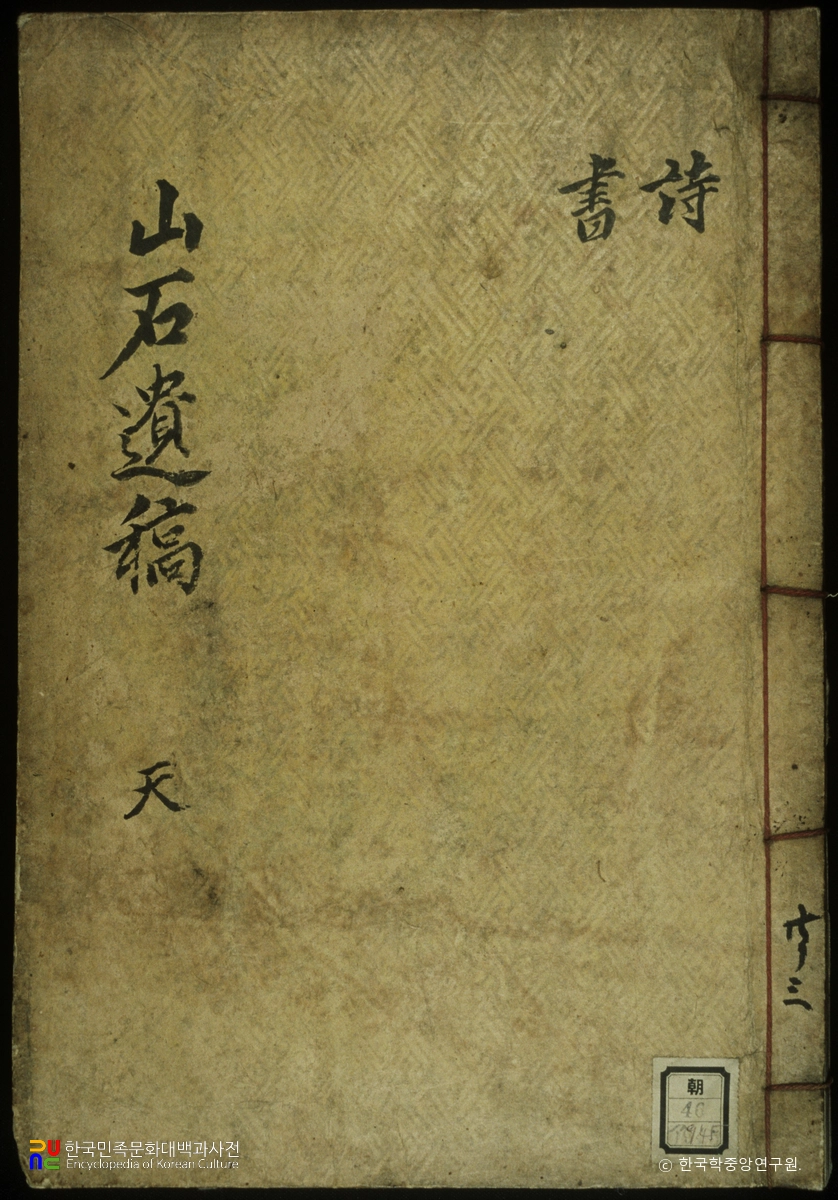 詩
書
山石遺稿 天
共三
朝
40
한국민족문화대백과사전
Encyclopedia of Korean Culture
© 한국학중앙연구원.